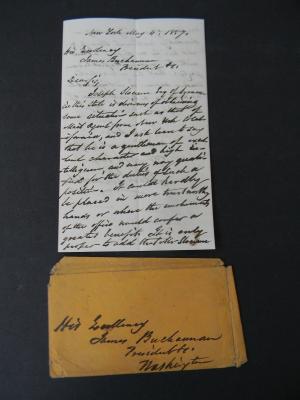 New York May 4, 1857.
His Excellency
James Buchannan
President &c.
Dear Sir,
Joseph Slocum Esq of Syracuse
in this State is desirous of obtaining
some situation such as that of
Mail Agent from New York to Cal-
ifornia, and I ask leave to say
that he is a gentleman of excel-
lent character and high in-
telligence and very well quali-
fied for the duties of such a
position. It could hardly
be placed in more trustworthy
hands or where the emoluments
of the office would confer a
greater benefit. It is only
proper to add that Mr Slocum
His Excellency
James Buchannan
President &c.
Washington